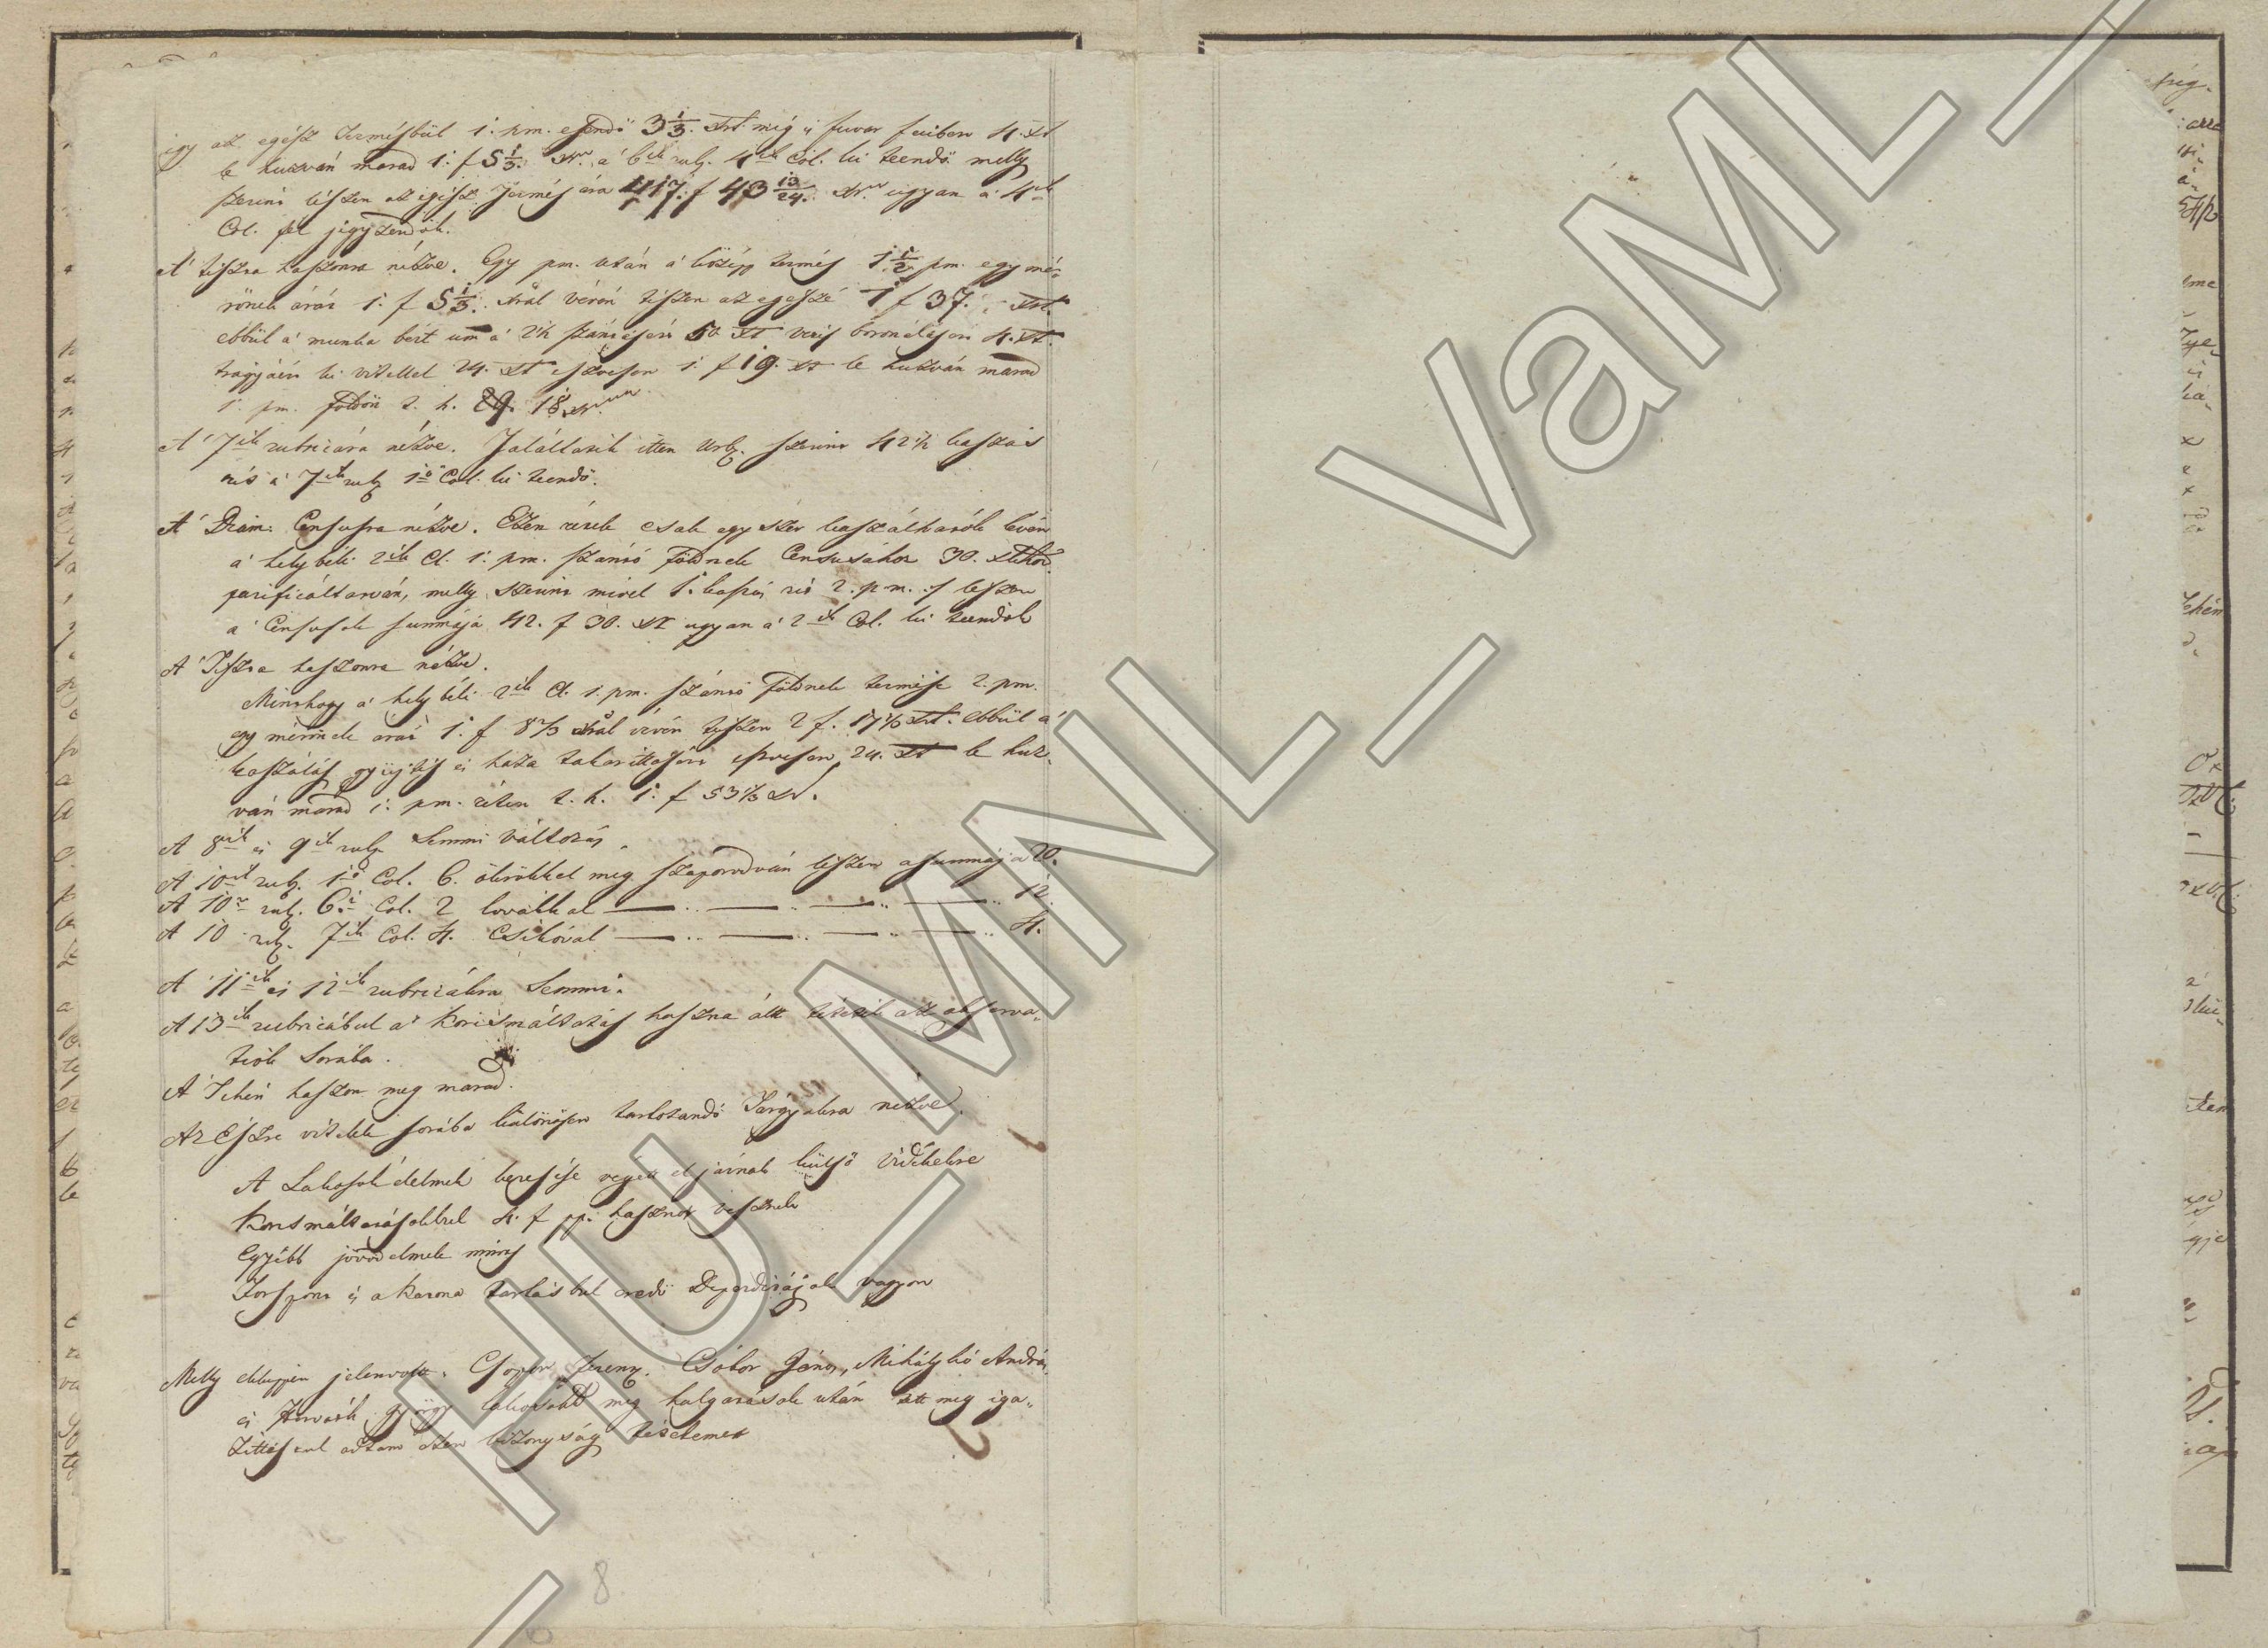 igy az egész termésbül 1. pm. esendő 3 1/3. xrt még is fuvar feiben 4. xt
le huzván marad 1. f 5 1/3. xr. a' 6ik rub. 4ik Col. ki teendő melly
szerint lészen az egész Termés ára 417. f 43 13/24. xr. ugyan a' 4ik
Col. fel jegyzendők.
A' tiszta haszonra nézve. Egy pm. után a' közép termés 1 1/2 pm. egy mé-
rőnek árát 1. f 5 1/3. xrál vévén tészen az egesszé 1 f 37. xrt.
ebbül a' munka bért um a' 2k szántásért 50 xt vetés boronálásért 4. xt.
trágyáért ki vitellel 24. xt eszvesen 1. f 19. xt le huzván marad
1. pm. földön t. h. 18 xr.
A' 7ik rubricára nézve. Találtatik itten Urb. szerint 42 1/2 kaszás
rét a' 7ik rub 1ő Col. ki teendő.
A' Dicin: Censusra nézve. Ezen rétek csak egyszer kaszálhatók lévén
a' helybéli 2ik Cl. 1. pm. szántó földnek Censusához 30. xhoz
parificáltatván, melly szerint mivel 1. kaszás rét 2. pm. lészen
a' Censusok summája 42. f 30. xr ugyan a' 2ik Col. ki teendők
A' Tiszta haszonra nézve.
Minthogy a' helybéli 2ik Cl. 1. pm. szántó földnek termése 2. pm.
egy mérőnek árát 1. f 8 2/3 xrál vévén tészen 2 f. 17 1/3 xrt. ebbül a'
kaszálás gyüjtés és haza takarittásért eszvesen 24. xt le huz-
ván marad 1. pm. réten t. h. 1. f 53 1/3 xr.
A 8ik és 9ik rub. Semmi változás.
A 10ik rub. 1ő Col. 6. ökrökkel meg szaporodván lészen a summája 20.
A 10. rub. 6i Col. 2 lovakkal — .. — .. — .. — .. 12.
A 10 rub. 7ik Col. 4. Csikóval — .. — .. — .. — .. 4.
A 11ik és 12ik rubricákra Semmi.
A 13ik rubricábul a' Korismáltatás haszna ált tétetik az observa-
tiók Sorába.
A Tehén haszon meg marad.
Az Észre vételek sorába különösen tartozandó Tárgyakra nézve.
A Lakosok élelmek keresése végett el járnak külső Vidékekre
Korismáltatásokbul 4. f pp. hasznot vésznek
Egyébb jövedelmek nincs
Forspont és a Katona tartásbul eredő Deperditájok vagyon
Melly eképpen jelenvolt. Csopor Ferenz. Csábor János, Mihálykó András
és Horváth györgy lakosokk meg halgatások után itt meg iga-
zittásrul adtam ezen bizonyság tételemet
8